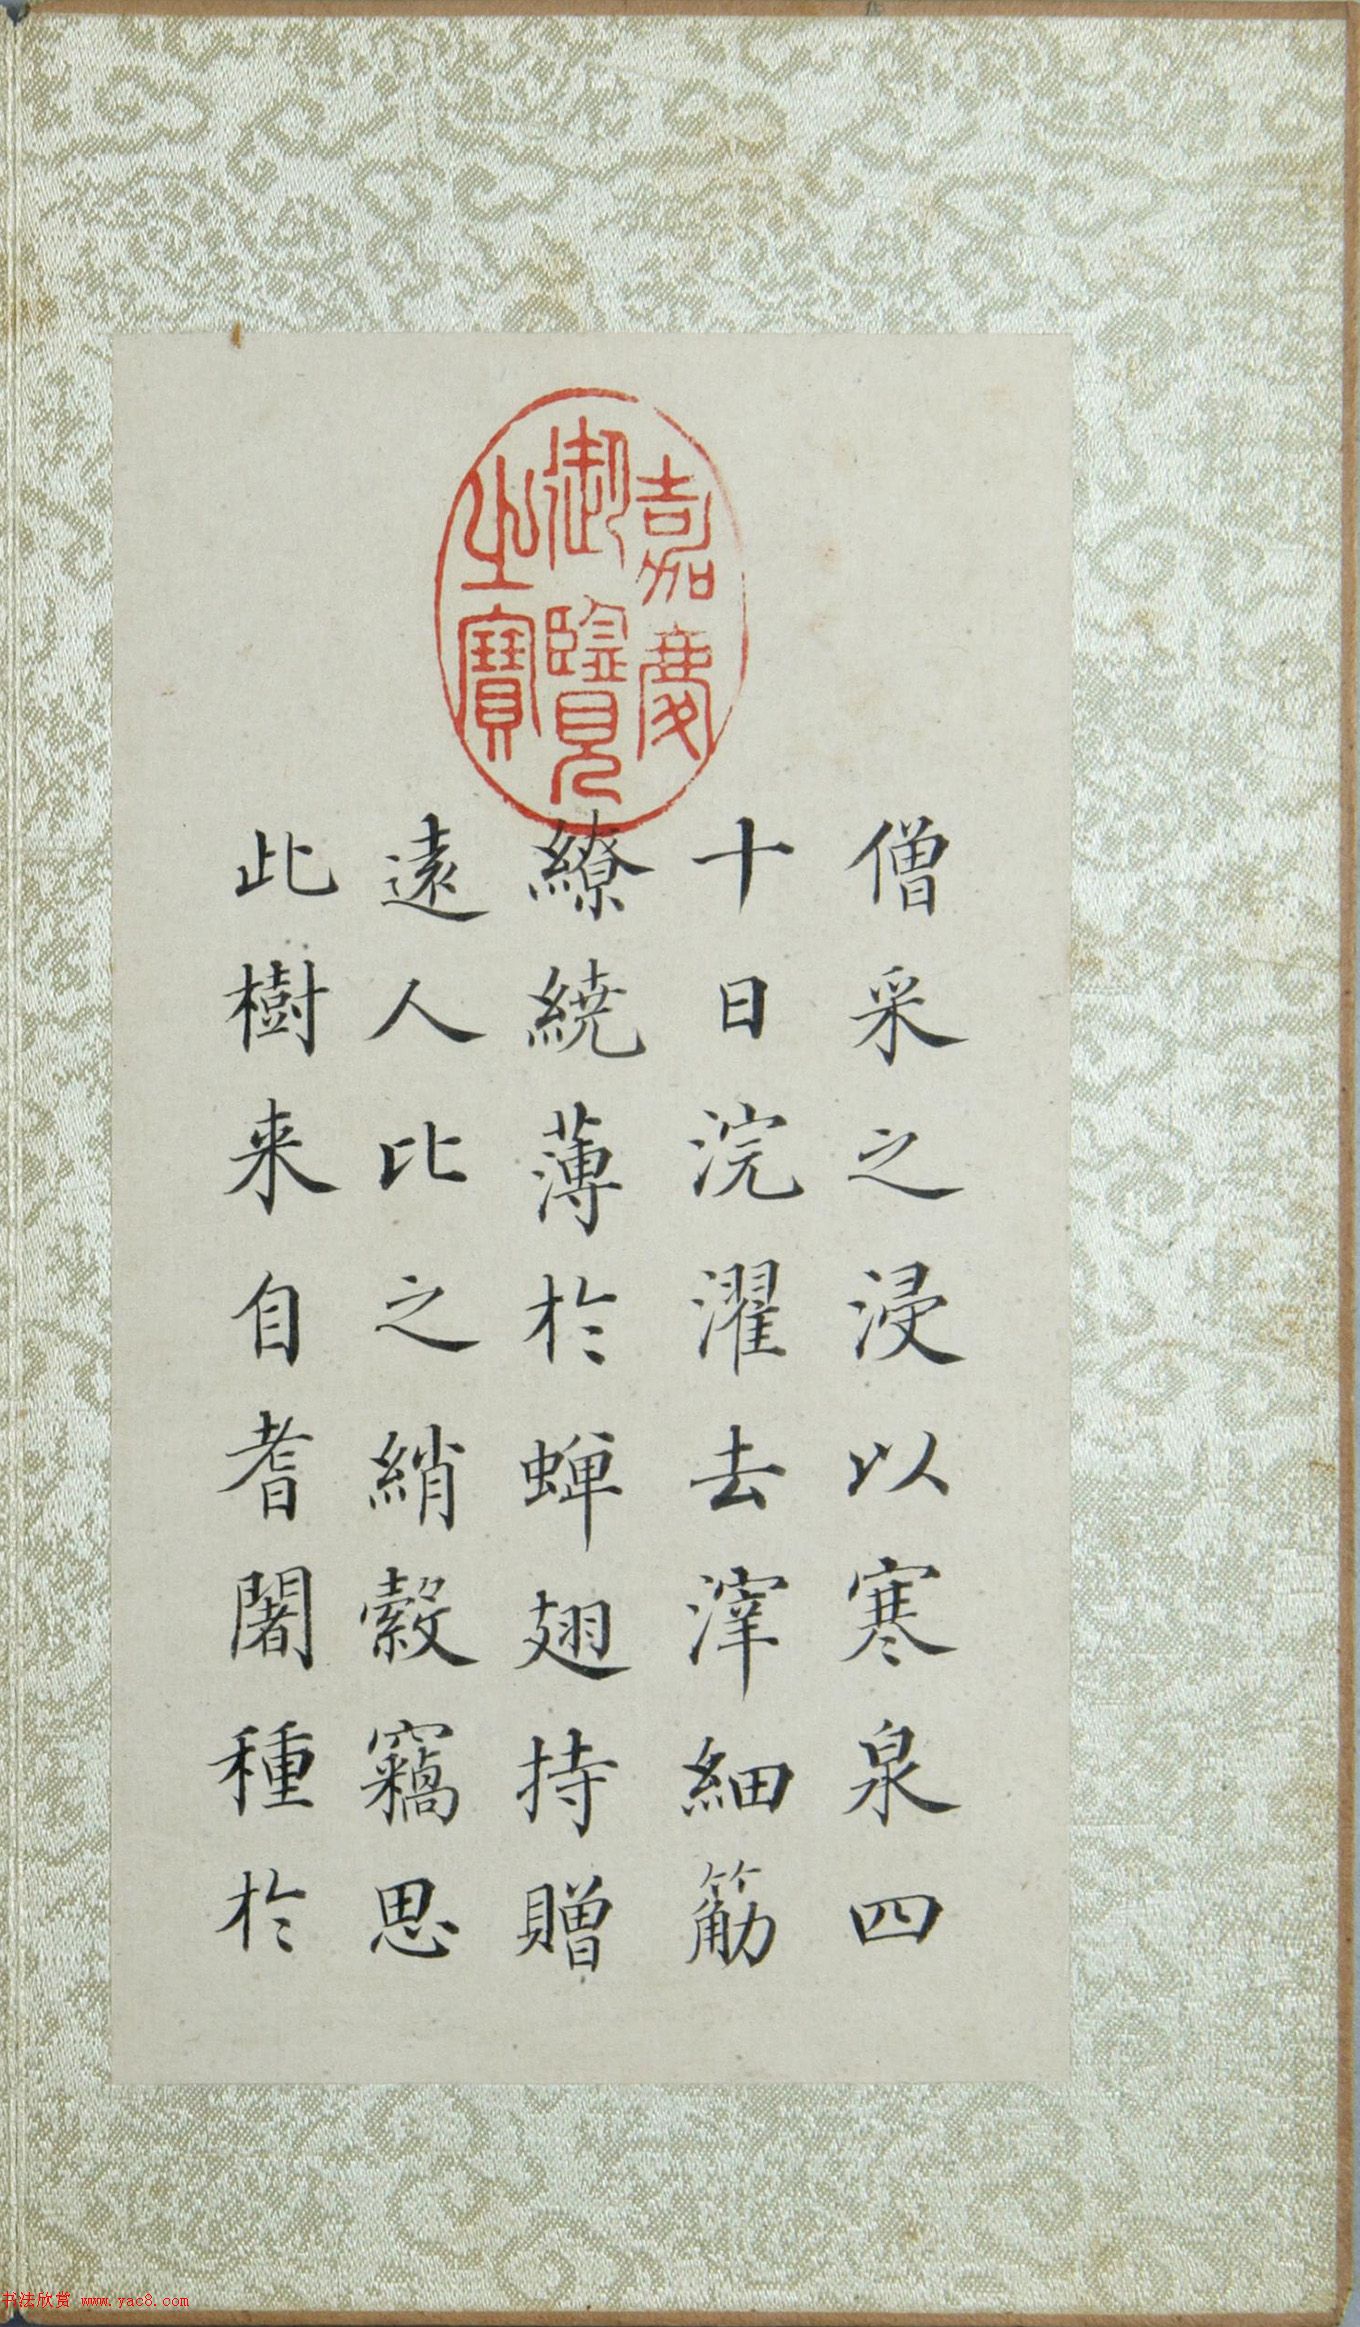 嘉慶
御覽
之寶
僧采之浸以寒泉四
十日浣濯去滓細筋
繚繞薄於蟬翅持贈
遠人比之綃縠竊思
此樹来自耆闍種於
书法欣赏 www.yac8.com